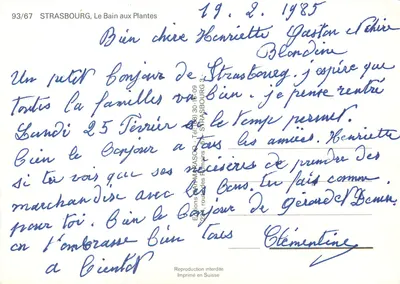 93/67 STRASBOURG, Le Bain aux Plantes
19.2.1985
Bien chère Henriette Gaston et chère
Blondine
Un petit bonjour de Strasbourg. j'espère que
toutes la familles va bien. je pense rentré
Lundi 25 Février si le temp permet.
bien le bonjour a tous les amiées. Henriette
si tu vois que ses nécéseres de prendre des
marchandise avec les bons. tu fais comme
pour toi. bien le bonjour de Gérard et Denis.
on t'embrasse bien tous Clémentine
a bientot
Reproduction interdite
Imprimé en Suisse